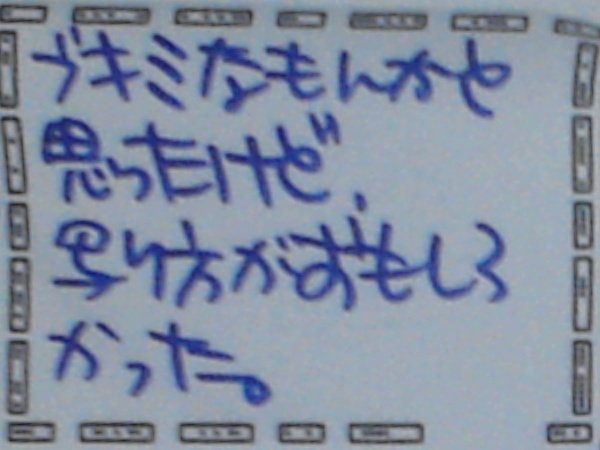 ブキミなもんかと
思ったけど、
写り方がおもしろ
かった。